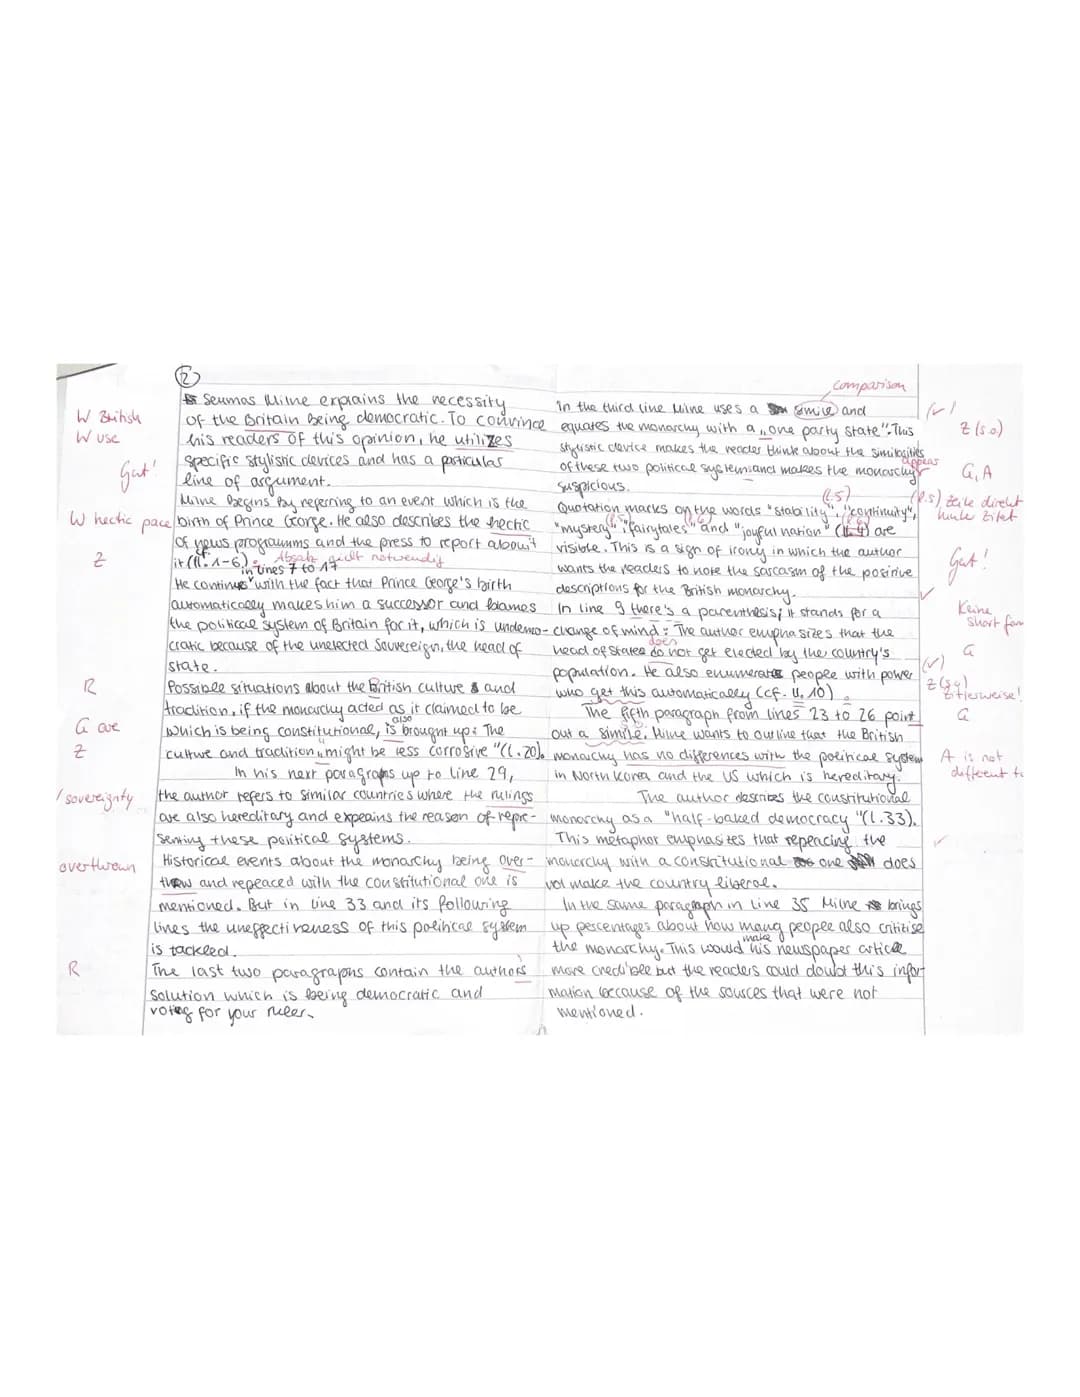 2
Seumas Milne explains the necessity
W British
of the Britain being democratic. To convince
W use
his readers of this opinion, he utilizes
Gut!
specific stylistic devices and has a particular
line of argument.
Milne begins by referring to an event which is the
W hectic pace
birth of Prince George. He also describes the hectic
of news programms and the press to report about
Z
it (ll. 1-6). Absatz nicht notwendig
in lines 7 to 17
He continues with the fact that Prince George's birth
automatically makes him a successor and blames
the political system of Britain for it, which is undemo-
cratic because of the unelected Souvereign, the head of
state.
R
Possible situations about the British culture and
tradition, if the monarchy acted as it claimed to be
G are
which is being constitutional, is also brought up: The
Z
culture and tradition "might be less corrosive "(l. 20).
In his next paragraphs up to line 29,
/ sovereignty
the author refers to similar countries where the rulings
are also hereditary and explains the reason of repre-
senting these political systems.
overthrown
Historical events about the monarchy being over-
threw and replaced with the constitutional one is
mentioned. But in line 33 and its following
lines the uneffectiveness of this political system
is tackled.
R
The last two paragraphs contain the authors
solution which is being democratic and
voting for your ruler.
comparison
In the third line Milne uses a simile and
(✓)
equates the monarchy with a „one party state". This
Z (s.o)
stylistic device makes the reader think about the similarities
of these two political systems and makes the monarchy appear
G, A
suspicious.
(l.5)
(l.5) Zeile direkt
hinter Zitat
Quotation marks on the words "stability", "continuity",
"mystery", (l.5) "fairytales" (l.6) and "joyful nation" (l. 4) are
visible. This is a sign of irony in which the author
Gut!
wants the readers to note the sarcasm of the positive
descriptions for the British monarchy.
✓
In line 9 there's a parenthesis; it stands for a
Keine
short form
change of mind: The author emphasizes that the
head of states do not get elected by the country's
does
G
population. He also enumerates people with power
(✓)
who get this automatically (cf. ll. 10).
Z (s.u)
Zitierweise!
The fifth paragraph from lines 23 to 26 point
G
out a simile. Milne wants to outline that the British
monarchy has no differences with the political system
A is not
different to
in North Korea and the US which is hereditary.
The author describes the constitutional
monarchy as a "half-baked democracy "(l.33).
This metaphor emphasites that replacing the
✓
monarchy with a constitutional one does
not make the country liberal.
In the same paragraph in line 35 Milne brings
up pescentages about how many people also critisise
the monarchy. This would make his newspaper article
more credible but the readers could doubt this infor-
mation because of the sources that were not
mentioned.